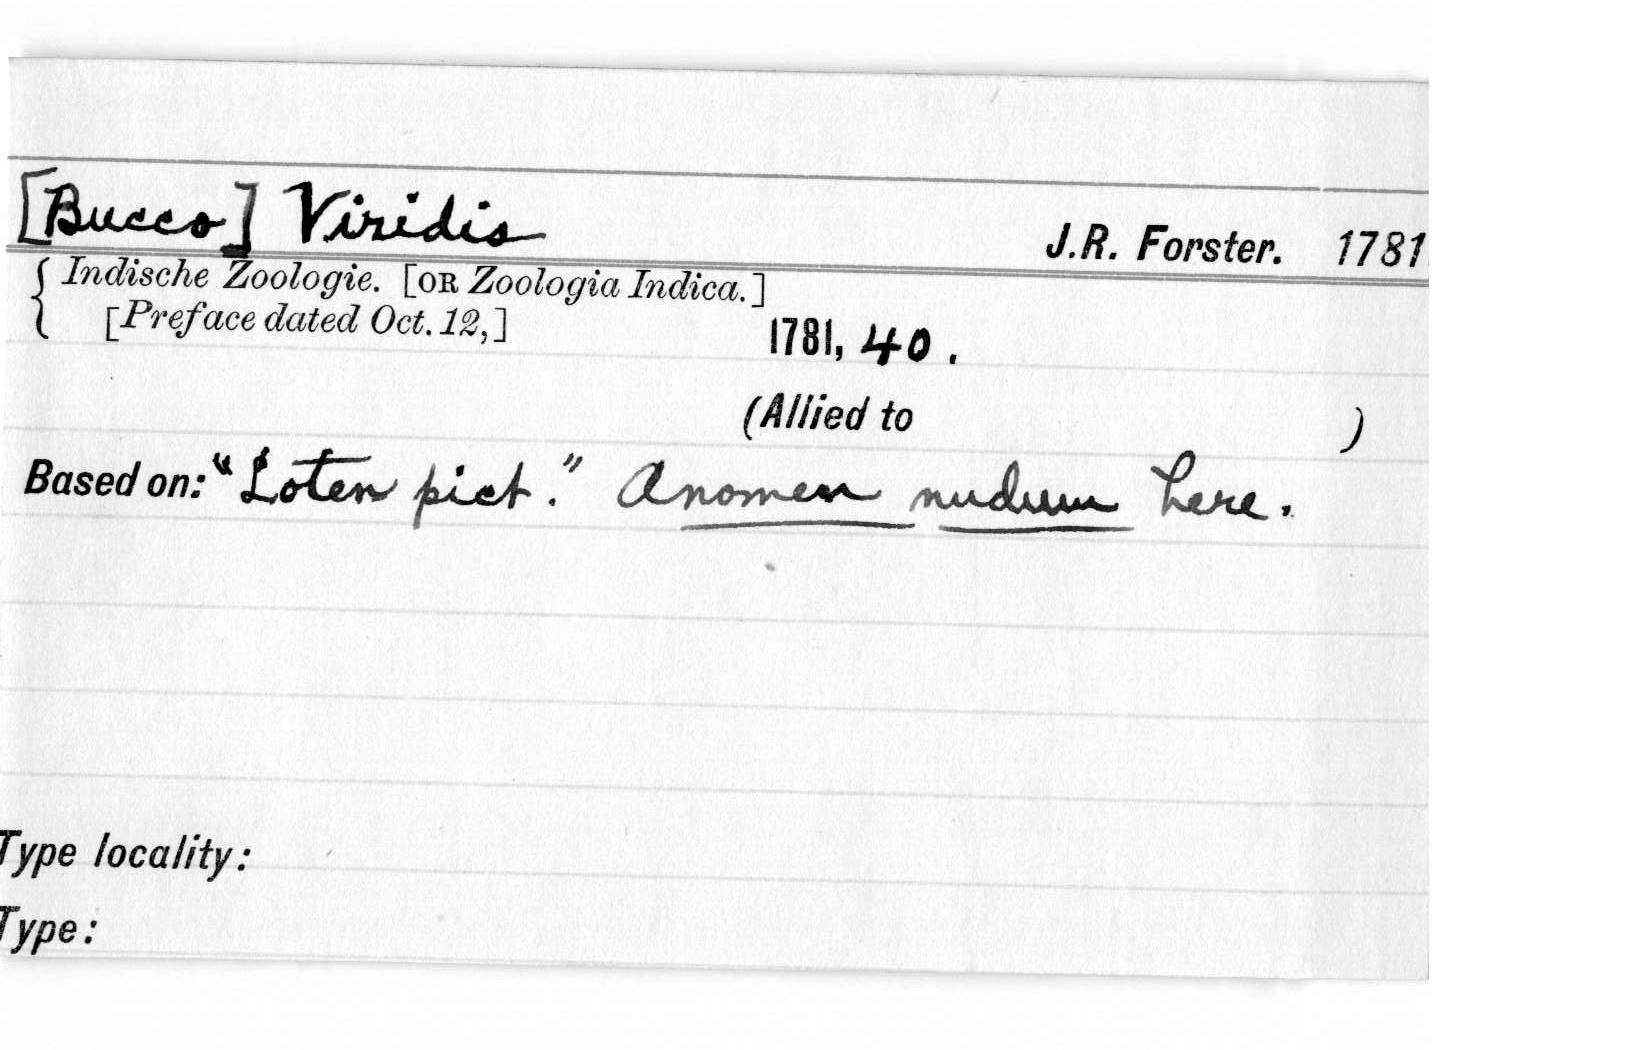 [Bucco] Viridis J.R. Forster. 1781
Indische Zoologie. [OR Zoologia Indica.]
[Preface dated Oct. 12,]
1781, 40.
(Allied to )
Based on: "Loten pict." A nomen nudum here.
Type locality:
Type: